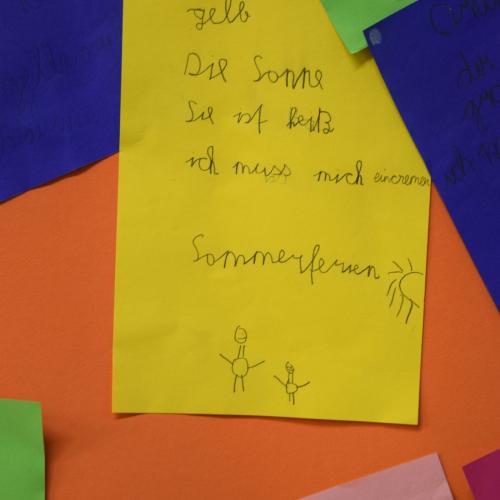 gelb
Die Sonne
Sie ist heiß
ich muss mich eincremen
Sommerferien